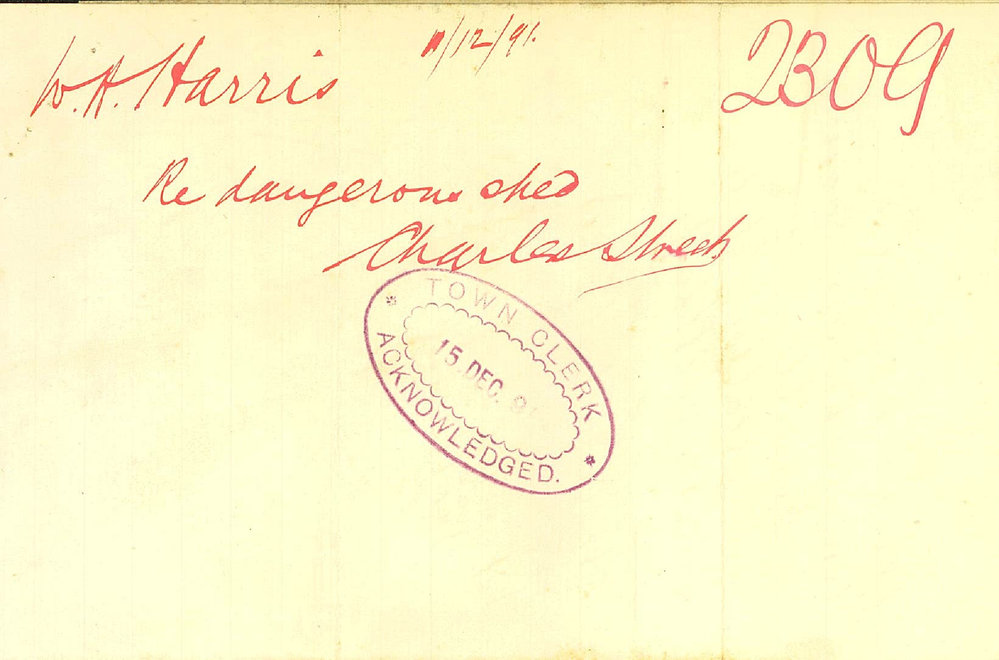 W. H. Harris
11/12/91.
2309
Re dangerous shed
Charles Street
TOWN CLERK
15 DEC. 9
ACKNOWLEDGED.